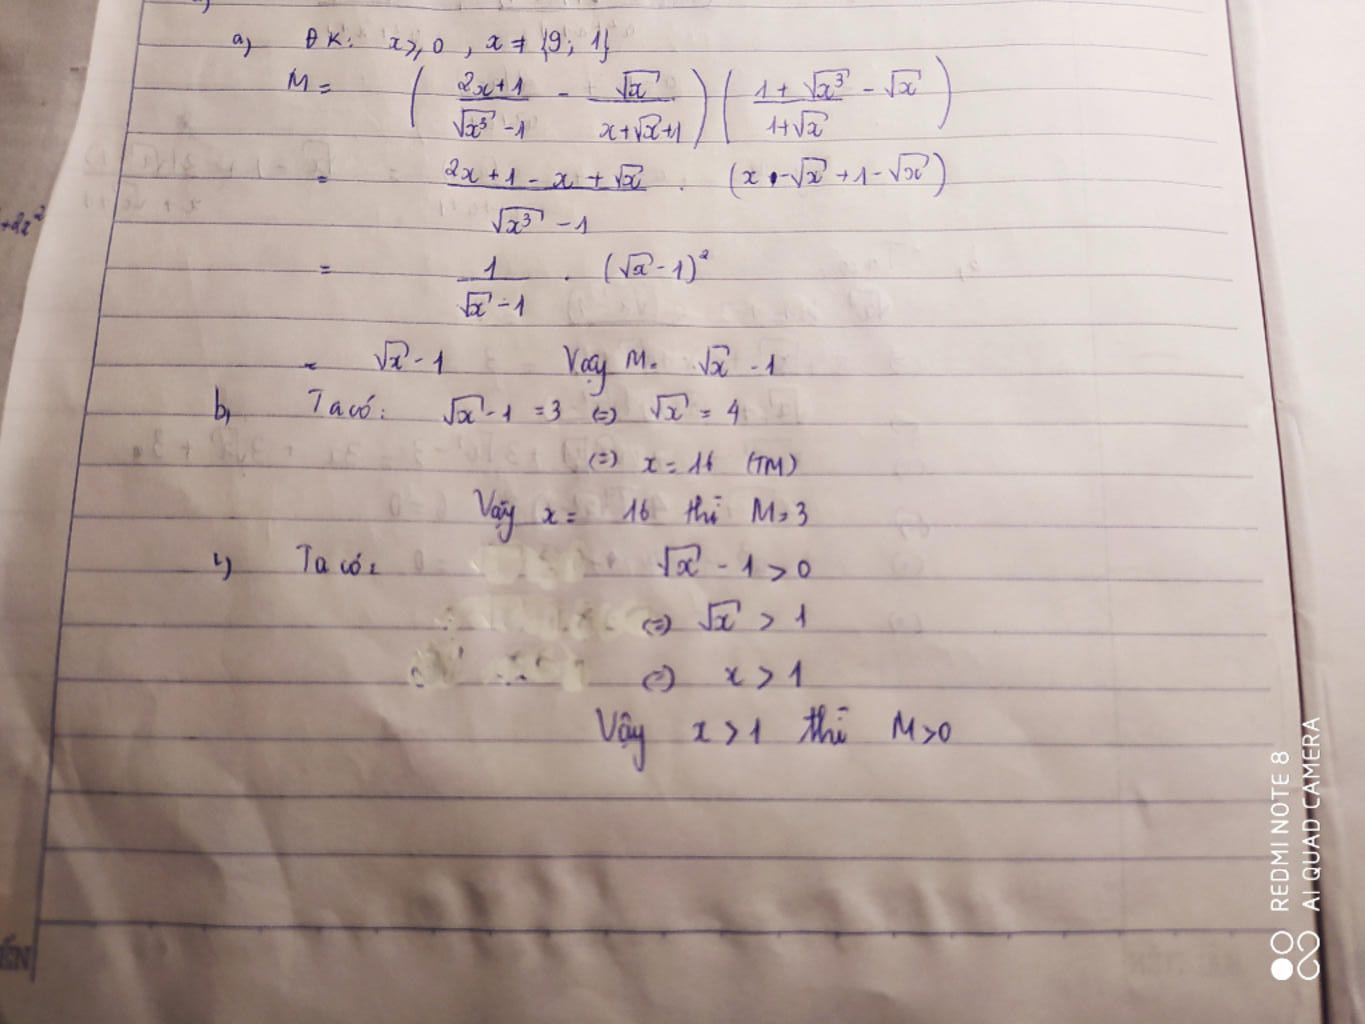 a, ĐK: x ≥ 0, x ≠ {9; 1}
M = ( (2x+1)/(√x³ - 1) - √x/(x+√x+1) ) ( (1+√x³)/(1+√x) - √x )
= (2x+1 - x + √x)/(√x³ - 1) . (x - √x + 1 - √x)
= 1/(√x - 1) . (√x - 1)²
= √x - 1 Vậy M = √x - 1
b, Ta có: √x - 1 = 3 (=) √x = 4
(=) x = 16 (TM)
Vậy x = 16 thì M = 3
c, Ta có: √x - 1 > 0
(=) √x > 1
(=) x > 1
Vậy x > 1 thì M > 0
+2x²
REDMI NOTE 8
AI QUAD CAMERA